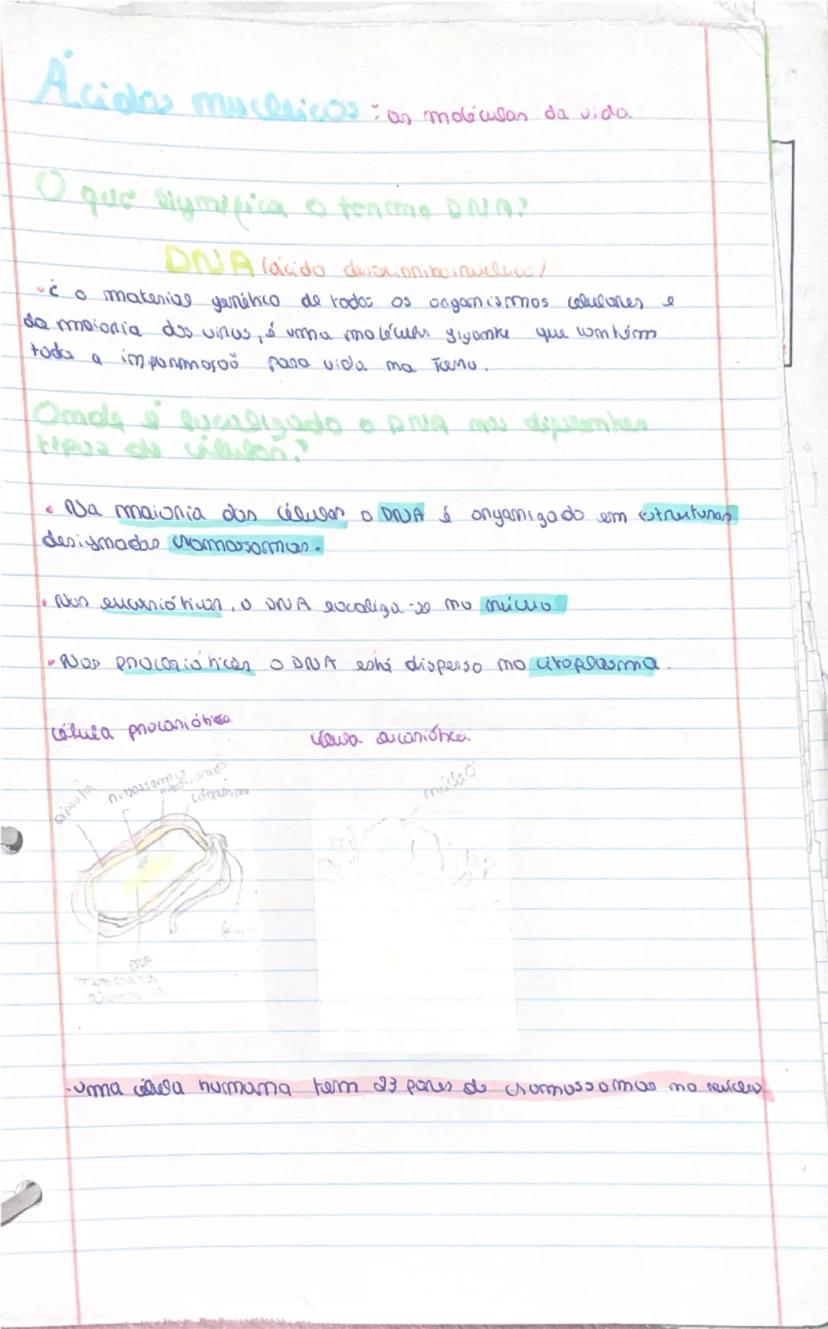 Ácidos nucleicos: as moléculas da vida
O que significa o termo DNA?
DNA (ácido desoxirribonucleico)
- é o material genético de todos os organismos celulares e
da maioria dos vírus, é uma molécula gigante que contém
toda a informação para vida na Terra.
Onde é localizado o DNA nos diferentes
tipos de células?
• Na maioria das células o DNA é organizado em estruturas
designadas cromossomas.
• Nas eucarióticas, o DNA localiza-se no núcleo
• Nas procarióticas o DNA está disperso no citoplasma.
célula procariótica célula eucariótica
cápsula ribossomas citoplasma núcleo
DNA
membrana
- uma célula humana tem 23 pares de cromossomas no núcleo